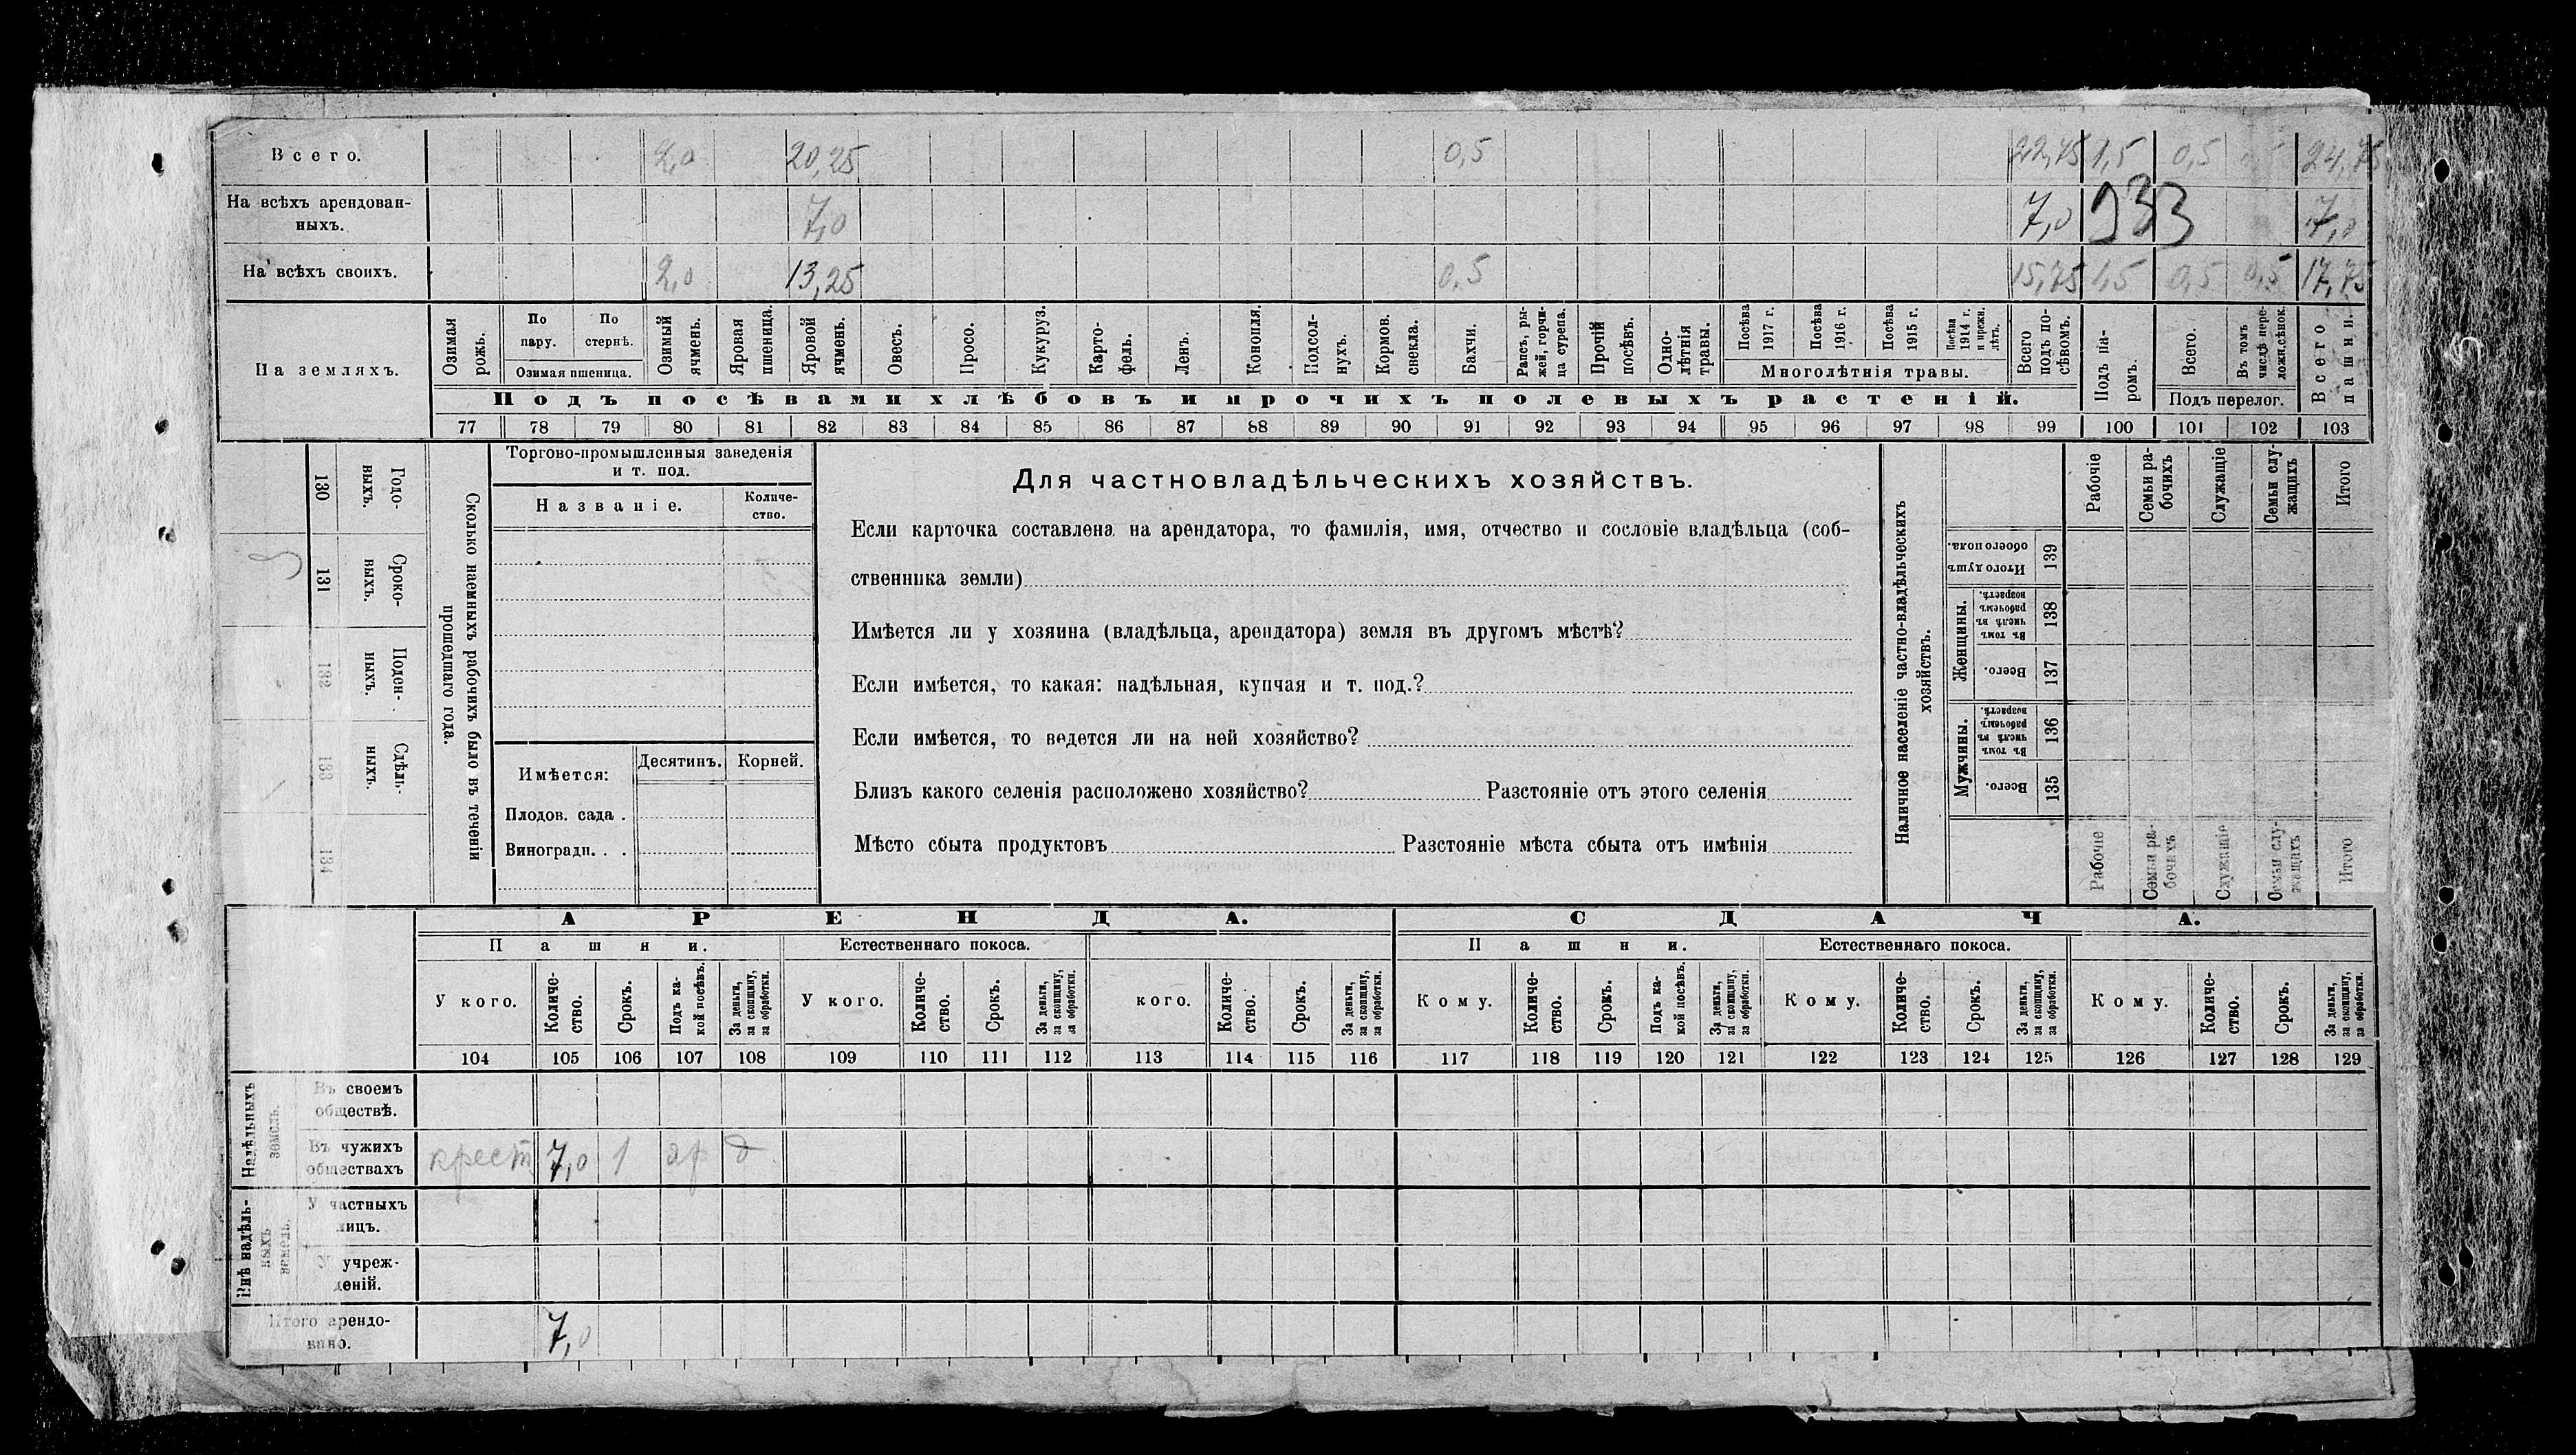 Всего. 2,0 20,25 0,5 22,75 1,5 0,5 0,5 24,75
На всѣхъ арендован-
ныхъ. 7,0 7,0 933 7,0
На всѣхъ своихъ. 2,0 13,25 0,5 15,75 1,5 0,5 0,5 17,75
На земляхъ.
Озимая рожь.
По пару.
По стернѣ.
Озимая пшеница.
Озимый ячмень.
Яровая пшеница.
Яровой ячмень.
Овесъ.
Просо.
Кукуруз.
Карто-
фель.
Ленъ.
Конопля.
Подсол-
нухъ.
Кормов. свекла.
Бахчи.
Рапсъ, ры-
жей, горчи-
ца сурепа.
Прочій посѣвъ.
Одно-
лѣтнія травы.
Посѣва 1917 г.
Посѣва 1916 г.
Посѣва 1915 г.
Посѣва 1914 г. и прежн. лѣтъ.
Многолѣтнія травы.
Всего подъ по-
сѣвомъ.
Подъ па-
ромъ.
Всего.
Въ томъ числѣ пере-
ложн.сѣнок.
Подъ перелог.
Всего пашни.
Подъ посѣвами хлѣбовъ и прочихъ полевыхъ растеній.
77 78 79 80 81 82 83 84 85 86 87 88 89 90 91 92 93 94 95 96 97 98 99 100 101 102 103
130 Годо-
выхъ.
131 Сроко-
ныхъ.
132 Поден-
ныхъ.
133 Сдѣль-
ныхъ.
134
Сколько наемныхъ рабочихъ было въ теченіи
прошедшаго года.
Торгово-промышленныя заведенія
и т. под.
Названіе.
Количе-
ство.
Имѣется:
Десятинъ. Корней.
Плодов. сада .
Виноградн. . .
Для частновладѣльческихъ хозяйствъ.
Если карточка составлена на арендатора, то фамилія, имя, отчество и сословіе владѣльца (соб-
ственника земли)
Имѣется ли у хозяина (владѣльца, арендатора) земля въ другомъ мѣстѣ?
Если имѣется, то какая: надѣльная, купчая и т. под.?
Если имѣется, то ведется ли на ней хозяйство?
Близъ какого селенія расположено хозяйство? Разстояніе отъ этого селенія
Мѣсто сбыта продуктовъ Разстояніе мѣста сбыта отъ имѣнія
Наличное населеніе частно-владѣльческихъ
хозяйствъ.
Рабочіе
Семьи ра-
бочихъ
Служащіе
Семьи слу-
жащихъ
Итого
Итого душъ обоего пола. 139
Женщины.
Въ томъ числѣ въ рабочемъ возрастѣ. 138
Всего. 137
Мужчины.
Въ томъ числѣ въ рабочемъ возрастѣ. 136
Всего. 135
Рабочіе
Семьи ра-
бочихъ
Служащіе
Семьи слу-
жащихъ
Итого
АРЕНДА. СДАЧА.
Пашни. Естественнаго покоса. Пашни. Естественнаго покоса.
У кого.
Количе-
ство.
Срокъ.
Подъ ка-
кой посѣвъ.
За деньги, за скопщину, за обработки.
У кого.
Количе-
ство.
Срокъ.
За деньги, за скопщину, за обработки.
кого.
Количе-
ство.
Срокъ.
За деньги, за скопщину, за обработки.
Кому.
Количе-
ство.
Срокъ.
Подъ ка-
кой посѣвъ.
За деньги, за скопщину, за обработки.
Кому.
Количе-
ство.
Срокъ.
За деньги, за скопщину, за обработки.
Кому.
Количе-
ство.
Срокъ.
За деньги, за скопщину, за обработки.
104 105 106 107 108 109 110 111 112 113 114 115 116 117 118 119 120 121 122 123 124 125 126 127 128 129
Надѣльныхъ земель.
Въ своемъ
обществѣ.
Въ чужихъ
обществахъ крест 7,0 1 яр д
Внѣ надѣль-
ныхъ земель.
У частныхъ
лицъ.
У учреж-
деній.
Итого арендо-
вано. 7,0